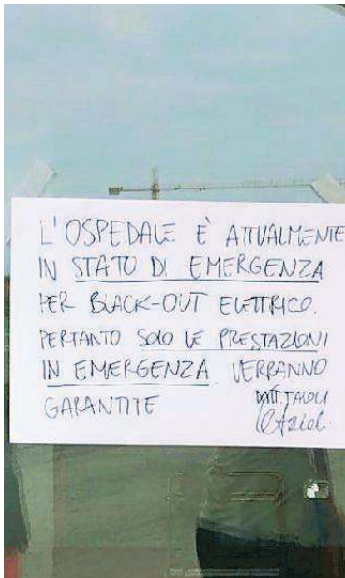 L'OSPEDALE È ATTUALMENTE
IN STATO DI EMERGENZA
PER BLACK-OUT ELETTRICO.
PERTANTO SOLO LE PRESTAZIONI
IN EMERGENZA VERRANNO
GARANTITE